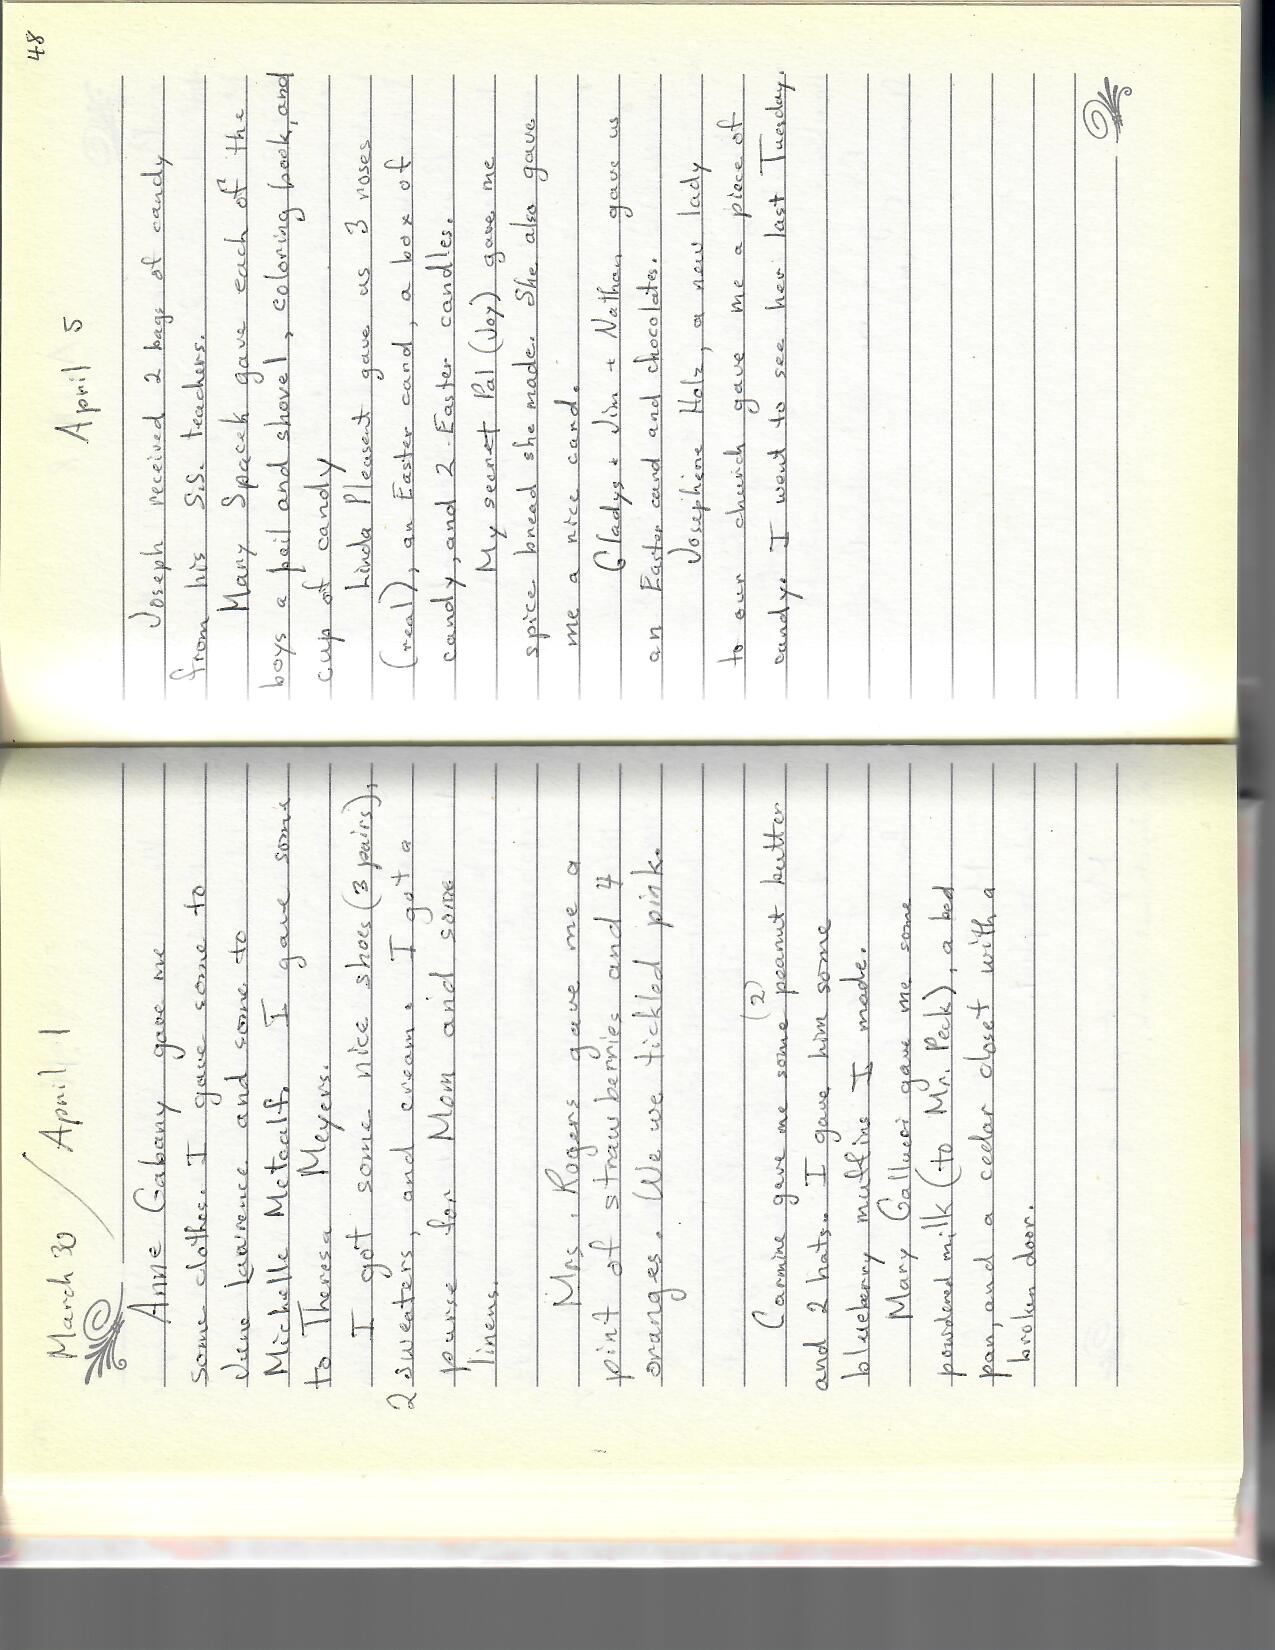 March 30 / April 1
Anne Gabany gave me
some clothes. I gave some to
June Lawrence and some to
Michelle Metcalf. I gave some
to Theresa Meyers.
I got some nice shoes (3 pairs),
2 sweaters, and cream. I got a
purse for Mom and some
linens.
Mrs. Rogers gave me a
pint of strawberries and 4
oranges. We we tickled pink.
(2)
Carmine gave me some peanut butter
and 2 hats. I gave him some
blueberry muffins I made.
Mary Gallucci gave me some
powdered milk (to Mr. Peck), a bed
pan, and a cedar closet with a
broken door.
48
April 5
Joseph received 2 bags of candy
from his S.S. teachers.
Mary Spacek gave each of the
boys a pail and shovel, coloring book, and
cup of candy
Linda Pleasent gave us 3 roses
(real), an Easter card, a box of
candy, and 2 Easter candles.
My secret Pal (Joy) gave me
spice bread she made. She also gave
me a nice card.
Gladys + Jim + Nathan gave us
an Easter card and chocolates.
Josephine Holz, a new lady
to our church gave me a piece of
candy. I went to see her last Tuesday.